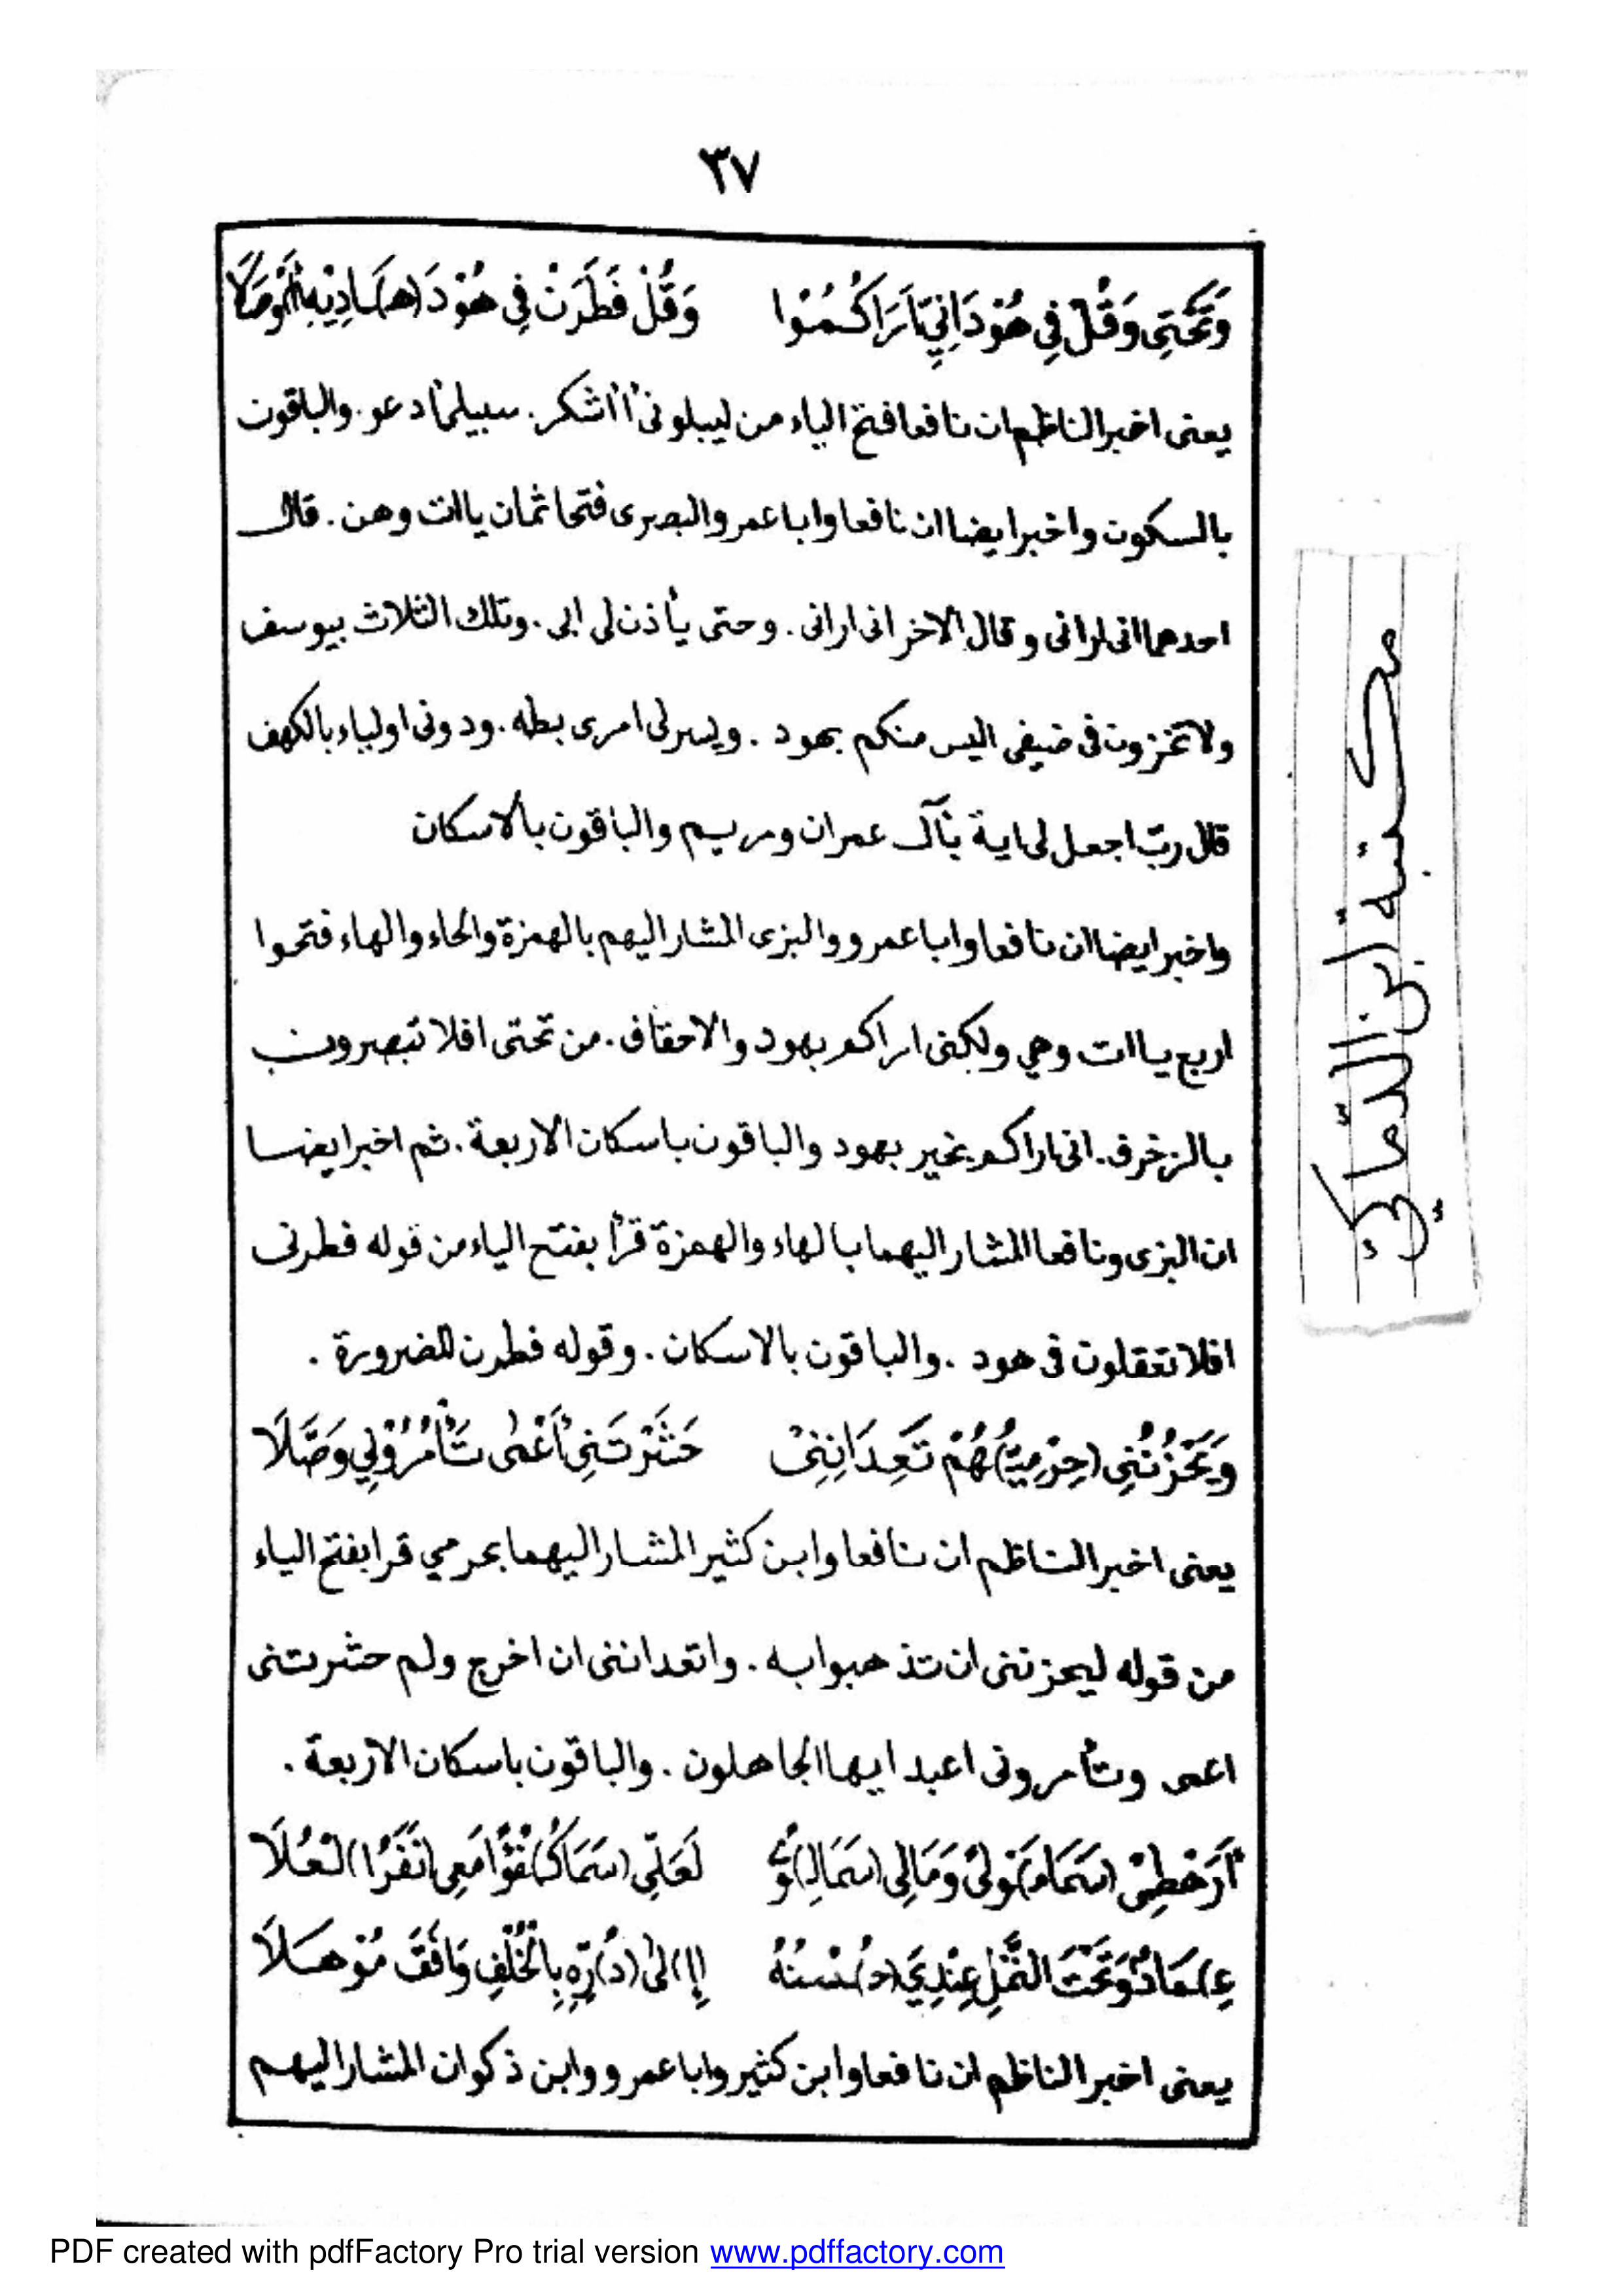 ٣٧
وَتَحْتِى وَقُلْ فِى هُوْدَ اِنِّيَ اَرَاكُمُوْا وَقُلْ فَطَرَنْ فِى هُوْدَ (هـ)ـادِيْهِ أَوْصَلَا
يعنى اخبر الناظم ان نافعا فتح الياء من ليبلونى أأشكر . سبيلى أدعو . والباقون
بالسكون واخبر ايضا ان نافعا وابا عمر والبصرى فتحا ثمان ياات وهن . قال
احدهما انى ارانى وقال الاخر انى ارانى . وحتى يأذن لى ابى . وتلك الثلاث بيوسف
ولا تخزون فى ضيفى اليس منكم بهود . ويسر لى امرى بطه . ودونى اولياء بالكهف
قال ربّ اجعل لى اية بآل عمران ومريم والباقون بالاسكان
واخبر ايضا ان نافعا وابا عمرو والبزى المشار اليهم بالهمزة والحاء والهاء فتحوا
اربع ياات وهي ولكنى اراكم بهود والاحقاف . من تحتى افلا تبصرون
بالزخرف . انى اراكم بخير بهود والباقون باسكان الاربعة . ثم اخبر ايضا
ان البزى ونافعا المشار اليهما بالهاء والهمزة قرأ بفتح الياء من قوله فطرنى
افلا تعقلون فى هود . والباقون بالاسكان . وقوله فطرن للضرورة .
وَيَحْزُنُنِى (حِرْمِيُّـ)ـهُمْ تَعِدَانِنِىْ حَشَرْتَنِى أَعْمٰى تَأْمُرُوْنِي وَصَّلَا
يعنى اخبر الناظم ان نافعا وابن كثير المشار اليهما بحرمي قرا بفتح الياء
من قوله ليحزننى ان تذهبوا به . واتعداننى ان اخرج ولم حشرتنى
اعمى وتأمرونى اعبد ايها الجاهلون . والباقون باسكان الاربعة .
أَرَهْطِىْ (سَمَا مَـ)ـوْلًى وَمَالِى (سَمَا لِـ)ـوًى لَعَلِّى (سَمَا كُـ)ـفْؤًا مَعِى (نَفَرُ ا)لْعُلَا
(عِـ)ـمَادٌ وَتَحْتَ النَّمْلِ عِنْدِيَ (حُـ)ـسْنُهُ (إِ)لٰى (دُ)رِّهِ بِالْخُلْفِ وَافَقَ مُوْهَلَا
يعنى اخبر الناظم ان نافعا وابن كثير وابا عمرو وابن ذكوان المشار اليهم
مكتبة ابن الدّمايكيّ
PDF created with pdfFactory Pro trial version www.pdffactory.com